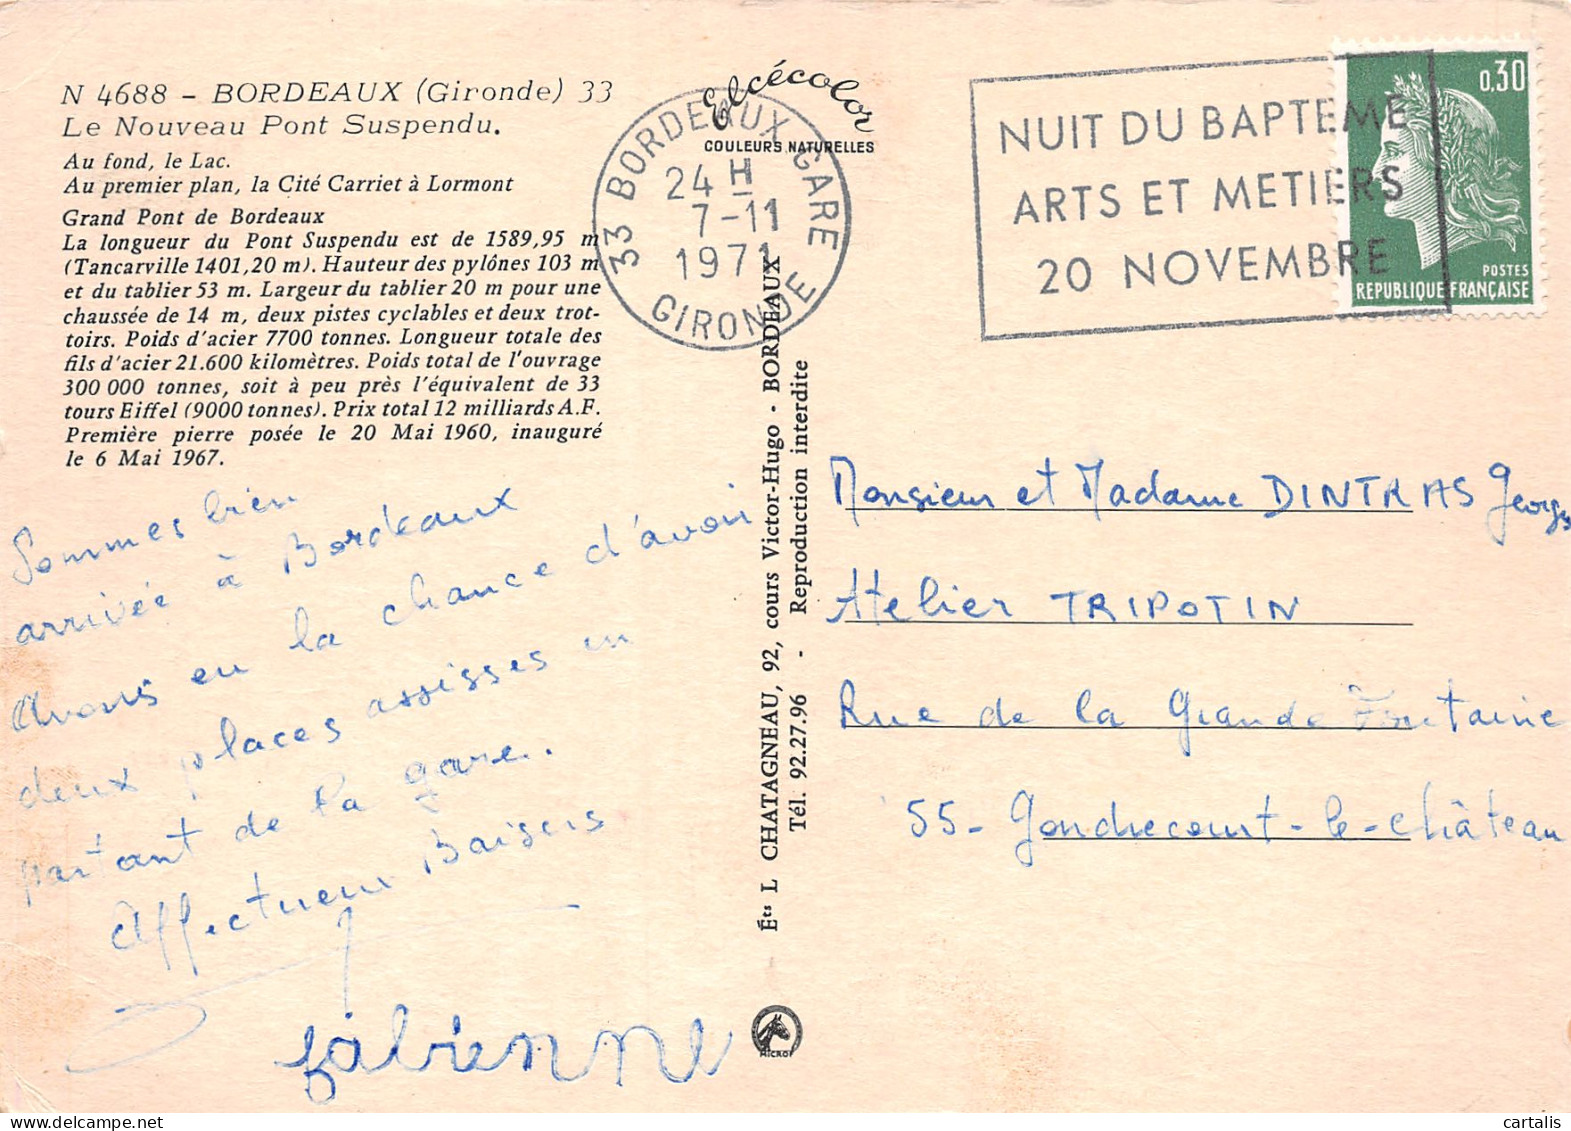 N 4688 - BORDEAUX (Gironde) 33
Le Nouveau Pont Suspendu.
Au fond, le Lac.
Au premier plan, la Cité Carriet à Lormont
Grand Pont de Bordeaux
La longueur du Pont Suspendu est de 1589,95 m
(Tancarville 1401,20 m). Hauteur des pylônes 103 m
et du tablier 53 m. Largeur du tablier 20 m pour une
chaussée de 14 m, deux pistes cyclables et deux trot-
toirs. Poids d'acier 7700 tonnes. Longueur totale des
fils d'acier 21.600 kilomètres. Poids total de l'ouvrage
300 000 tonnes, soit à peu près l'équivalent de 33
tours Eiffel (9000 tonnes). Prix total 12 milliards A.F.
Première pierre posée le 20 Mai 1960, inauguré
le 6 Mai 1967.
Sommes bien
arrivée à Bordeaux
Avons eu la chance d'avoir
deux places assises en
partant de la gare.
Affectueux Baisers
fabienne
Elcécolor
COULEURS NATURELLES
33 BORDEAUX-GARE
24 H
7-11
1971
GIRONDE
NUIT DU BAPTEME
ARTS ET METIERS
20 NOVEMBRE
0,30
POSTES
REPUBLIQUE FRANÇAISE
Éts L CHATAGNEAU, 92, cours Victor-Hugo - BORDEAUX
Tél. 92.27.96 - Reproduction interdite
MICROF
Monsieur et Madame DINTRAS Georges
Atelier TRIPOTIN
Rue de la Grande Fontaine
55- Gondrecourt-le-château
cartalis